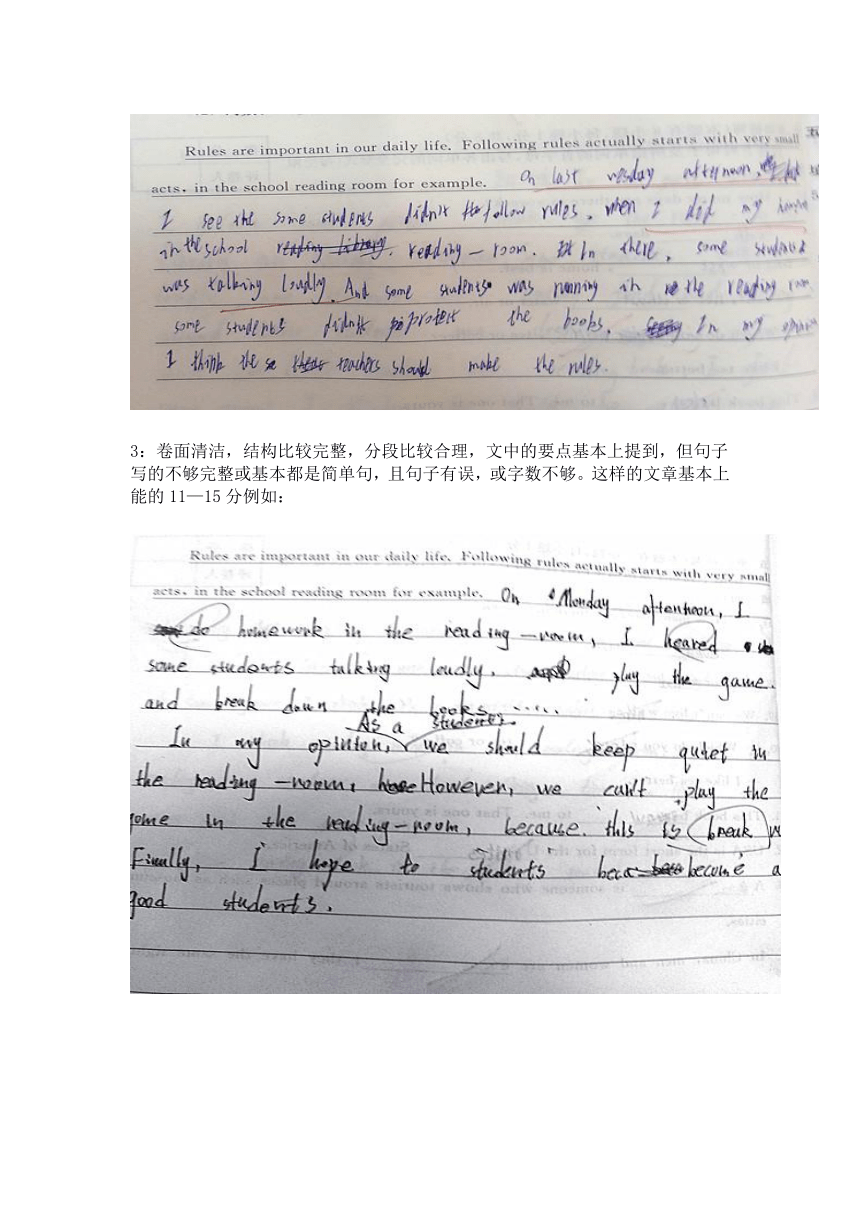 Rules are important in our daily life. Following rules actually starts with very small
acts, in the school reading room for example. On last afternoon,
I see the some students didn't follow rules. when I did my
in the school reading library. reading-room. In there, some students
was talking loudly. And some students was running in the reading room
some students didn't protect the books. In my opinion
I think the teachers should make the rules.
3：卷面清洁，结构比较完整，分段比较合理，文中的要点基本上提到，但句子
写的不够完整或基本都是简单句，且句子有误，或字数不够。这样的文章基本上
能的 11—15 分例如：
Rules are important in our daily life. Following rules actually starts with very small
acts, in the school reading room for example. On Monday afternoon, I
do homework in the reading-room, I heared
some students talking loudly. play the game.
and break down the books......
As a students.
In my opinion, we should keep quiet in
the reading-room, However, we can't play the
game in the reading-room, because. this is break
Finally, I hope to students become a
good students.